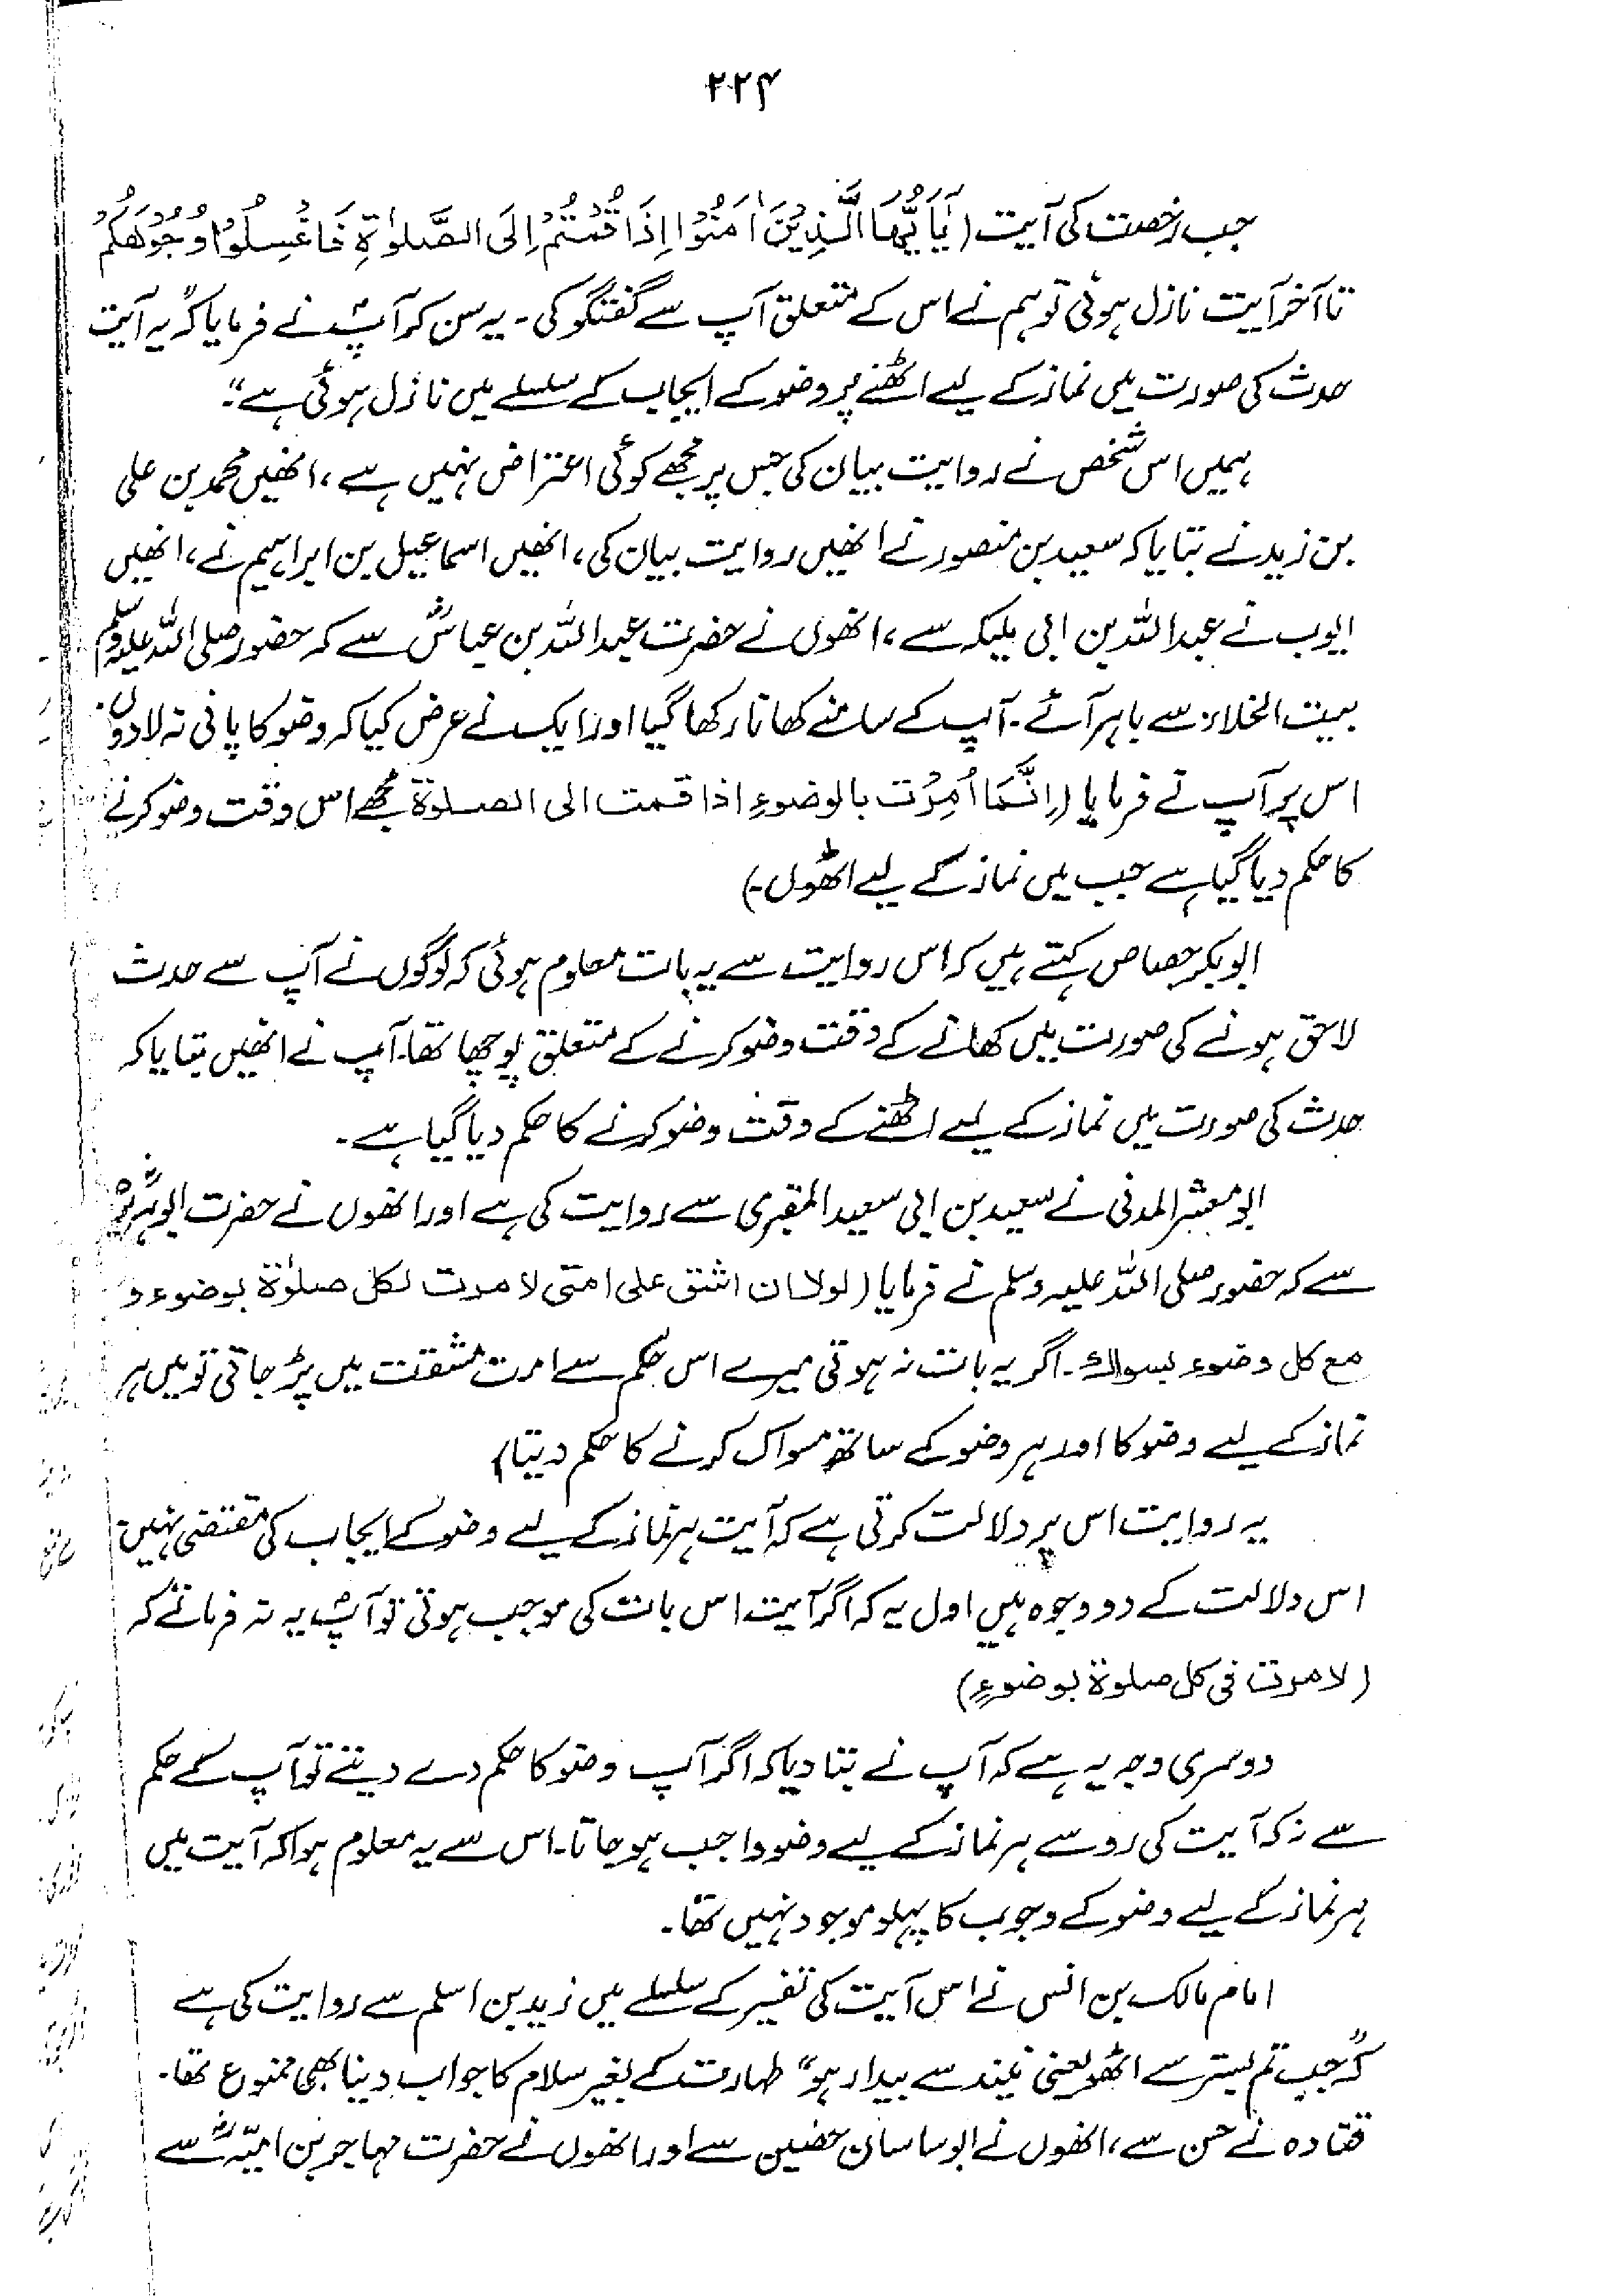 ۲۲۴
جب رخصت کی آیت (يٰٓاَيُّهَا الَّذِيْنَ اٰمَنُوْا اِذَا قُمْتُمْ اِلَى الصَّلٰوةِ فَاغْسِلُوْا وُجُوْهَكُمْ
تا آخر آیت نازل ہوئی تو ہم نے اس کے متعلق آپ سے گفتگو کی۔ یہ سن کر آپؐ نے فرمایا کہ "یہ آیت
حدث کی صورت میں نماز کے لیے اٹھنے پر وضو کے ایجاب کے سلسلے میں نازل ہوئی ہے"۔
ہمیں اس شخص نے روایت بیان کی جس پر مجھے کوئی اعتراض نہیں ہے، انھیں محمد بن علی
بن زید نے بتایا کہ سعید بن منصور نے انھیں روایت بیان کی، انھیں اسماعیل بن ابراہیم نے، انھیں
ایوب نے عبداللہ بن ابی ملیکہ سے، انھوں نے حضرت عبداللہ بن عباسؓ سے کہ حضور صلی اللہ علیہ وسلم
بیت الخلاء سے باہر آئے۔ آپ کے سامنے کھانا رکھا گیا اور ایک نے عرض کیا کہ وضو کا پانی نہ لا دوں
اس پر آپ نے فرمایا (اِنَّمَا اُمِرْت بالوضوءِ اذا قمت الى الصلوة مجھے اس وقت وضو کرنے
کا حکم دیا گیا ہے جب میں نماز کے لیے اٹھوں۔)
ابوبکر جصاص کہتے ہیں کہ اس روایت سے یہ بات معلوم ہوئی کہ لوگوں نے آپ سے حدث
لاحق ہونے کی صورت میں کھانے کے وقت وضو کرنے کے متعلق پوچھا تھا۔ آپ نے انھیں بتایا کہ
حدث کی صورت میں نماز کے لیے اٹھنے کے وقت وضو کرنے کا حکم دیا گیا ہے۔
ابو معشر المدنی نے سعید بن ابی سعید المقبری سے روایت کی ہے اور انھوں نے حضرت ابوہریرہؓ
سے کہ حضور صلی اللہ علیہ وسلم نے فرمایا (لولا ان اشق علی امتی لامرت لکل صلٰوة بوضوء و
مع کل وضوء بسواك۔ اگر یہ بات نہ ہوتی میرے اس حکم سے امت مشقت میں پڑ جاتی تو میں ہر
نماز کے لیے وضو کا اور ہر وضو کے ساتھ مسواک کرنے کا حکم دیتا)
یہ روایت اس پر دلالت کرتی ہے کہ آیت ہر نماز کے لیے وضو کے ایجاب کی مقتضی نہیں۔
اس دلالت کے دو وجوہ ہیں اول یہ کہ اگر آیت اس بات کی موجب ہوتی تو آپؐ یہ نہ فرماتے کہ
(لامرت فی کل صلوة بوضوءٍ)
دوسری وجہ یہ ہے کہ آپ نے بتا دیا کہ اگر آپ وضو کا حکم دے دیتے تو آپ کے حکم
سے نہ کہ آیت کی رو سے ہر نماز کے لیے وضو واجب ہو جاتا۔ اس سے یہ معلوم ہوا کہ آیت میں
ہر نماز کے لیے وضو کے وجوب کا پہلو موجود نہیں تھا۔
امام مالک بن انس نے اس آیت کی تفسیر کے سلسلے میں زید بن اسلم سے روایت کی ہے
کہ "جب تم بستر سے اٹھو یعنی نیند سے بیدار ہو" طہارت کے بغیر سلام کا جواب دینا بھی ممنوع تھا۔
قتادہ نے حسن سے، انھوں نے ابو ساسان حضین سے اور انھوں نے حضرت مہاجر بن امیّہؓ سے